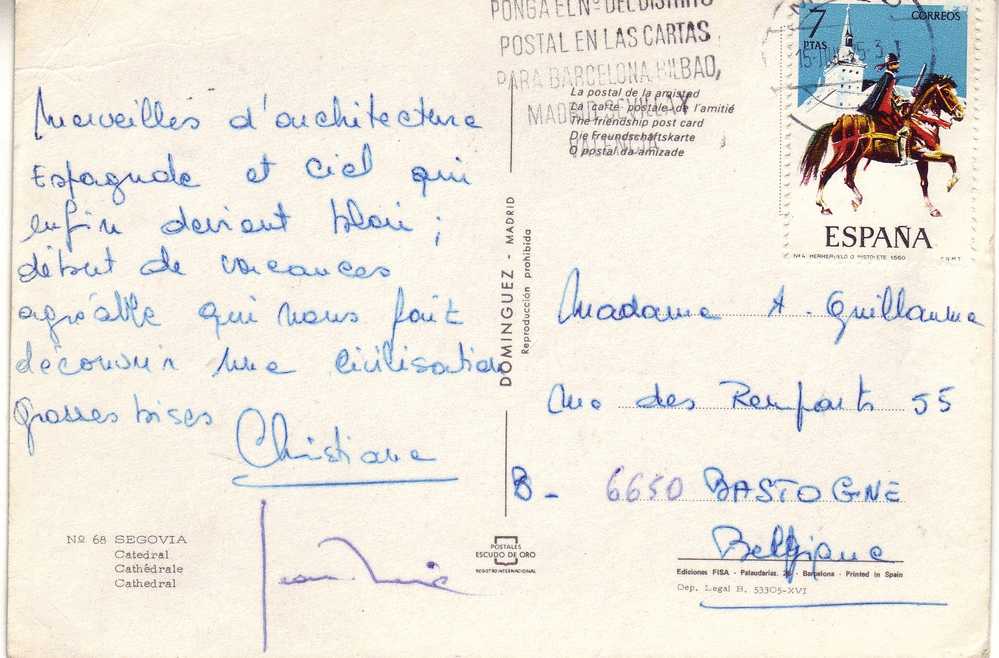 PONGA EL Nº DEL DISTRITO
POSTAL EN LAS CARTAS
PARA BARCELONA, BILBAO,
MADRID, SEVILLA Y
VALENCIA
7
PTAS
CORREOS
ESPAÑA
Nº4 HERRERUELO O PISTOLETE 1560
F.N.M.T.
La postal de la amistad
La carte postale de l'amitié
The friendship post card
Die Freundschäftskarte
O postal da amizade
Merveilles d'architecture
Espagnole et ciel qui
enfin devient bleu ;
début de vacances
agréable qui nous fait
découvrir une civilisation
grosses bises
Christiane
Jean-
DOMINGUEZ - MADRID
Reproducción prohibida
Madame A. Guillaume
des Remparts 55
B - 6650 BASTOGNE
Belgique
Nº 68 SEGOVIA
Catedral
Cathédrale
Cathedral
POSTALES
ESCUDO DE ORO
REGISTRO INTERNACIONAL
Ediciones FISA - Palaudarias, 26 - Barcelona - Printed in Spain
Dep. Legal B. 53305-XVI